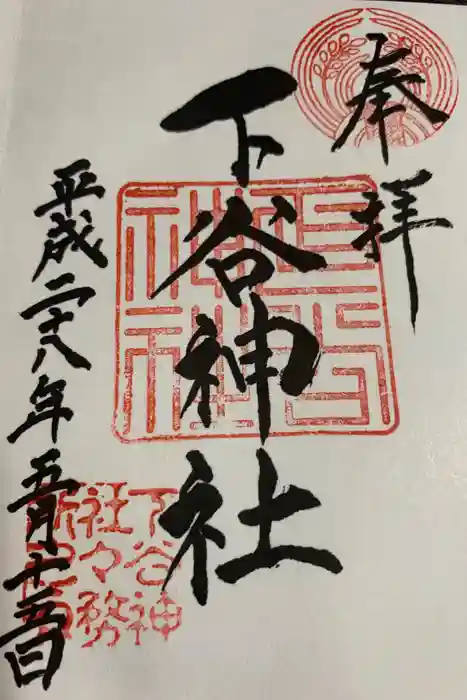 奉拝
下谷神社
平成二十八年五月十五日
下谷神
社々務